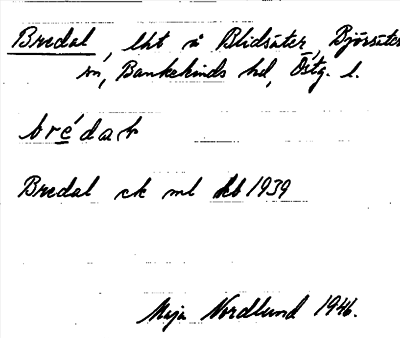 Bredal, lht å Blidsäter, Björsäters
sn, Bankekinds hd, Östg. l.
bre̲´daɫ
Bredal ck ml kb 1939
Maja Nordlund 1946.